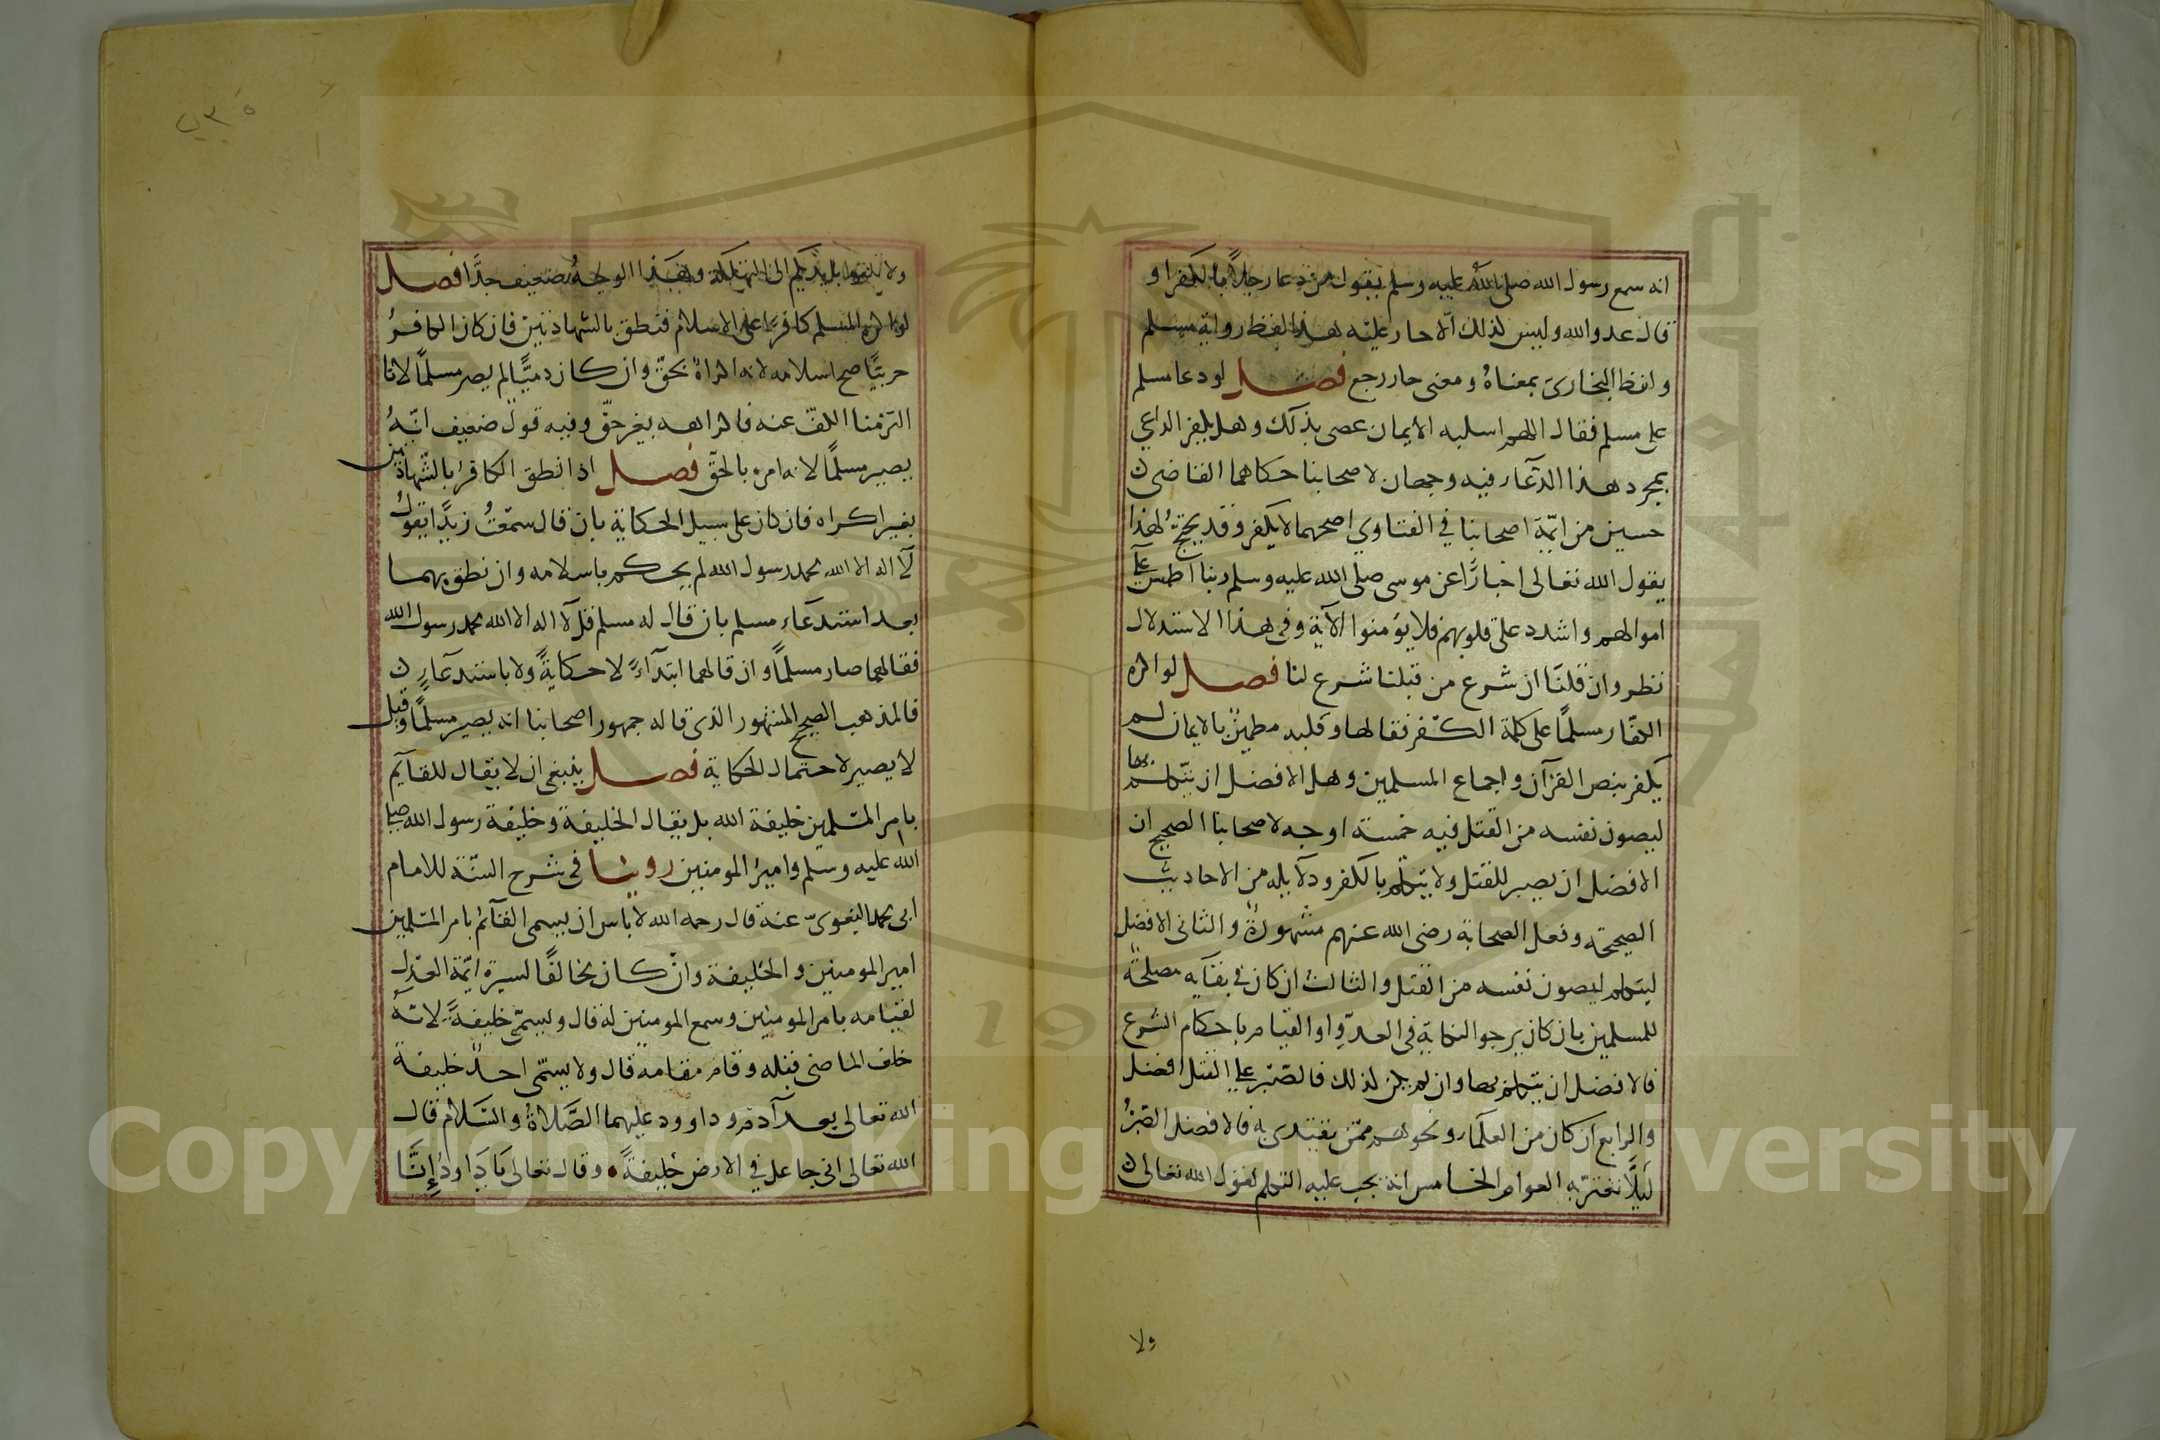 انه سمع رسول الله صلى الله عليه وسلم يقول من دعا رجلاً بالكفر او
قال عدو الله وليس لذلك الّا حار عليه هذا لفظ رواية مسلم
ولفظ البخارى بمعناهُ ومعنى حار رجع فصل لو دعا مسلم
على مسلم فقال اللهم اسلبه الايمان عصى بذلك وهل يكفر الداعي
بمجرد هذا الدعآء فيه وجهان لاصحابنا حكاهما القاضى
حسين من ايمّة اصحابنا في الفتاوي اصحهما لا يكفر وقد يحتج لهذا
يقول الله تعالى اخبارًا عن موسى صلى الله عليه وسلم ربنا اطمس على
اموالهم واشدد على قلوبهم فلا يؤمنوا الآية وفى هذا الاستدلال
نظر وان قلنا ان شرع من قبلنا شرع لنا فصل لو اكره
الكفّار مسلمًا على كلمة الكفر فقالها وقلبه مطمين بالايمان لم
يكفر بنص القرآن واجماع المسلمين وهل الافضل ان يتكلم بها
ليصون نفسه من القتل فيه خمسة اوجه لاصحابنا الصحيح ان
الافضل ان يصبر للقتل ولا يتكلم بالكفر ودلايله من الاحاديث
الصحيحة وفعل الصحابة رضى الله عنهم مشهورة والثانى الافضل
ليتكلم ليصون نفسه من القتل والثالث ان كان في بقآيه مصلحة
للمسلمين بان كان يرجو النكاية فى العدوّ او القيام باحكام الشرع
فالافضل ان يتكلم بها وان لم يكن لذلك فالصّبر على القتل افضل
والرابع ان كان من العلمآء ونحوهم ممّن يقتدى به فالافضل الصّبرُ
ليَلّا تغتر به العوام الخامس انه يجب عليه التكلم لقول الله تعالى
ولا
ولا تلقوا بايديكم الى التهلكة وهذا الوجه ضعيف جدًّا فصل
لو اكره المسلم كافرًا على الاسلام فنطق بالشهادتين فان كان الكافرُ
حربيًّا صح اسلامه لانه اكراهٌ بحقّ وان كان ذميًّا لم يصر مسلمًا لانا
التزمنا الكفّ عنه فاكراهه بغير حقّ وفيه قول ضعيف انّهُ
يصير مسلمًا لانه امره بالحقّ فصل اذا نطق الكافر بالشّهادتين
بغير اكراه فان كان على سبيل الحكاية بان قال سمعتُ زيدًا يقول
لآ اله الا الله محمد رسول الله لم يحكم باسلامه وان نطق بهما
بعد استدعَآءِ مسلم بان قال له مسلم قل لآ اله الا الله محمد رسول الله
فقالهما صار مسلمًا وان قالهما ابتدآءً لا حكايةً ولا باستدعآء
فالمذهب الصحيح المشهور الذى قاله جمهور اصحابنا انه يصير مسلمًا وقيل
لا يصير لاحتمال الحكاية فصل ينبغى ان لا يقال للقآيم
بامر المسلمين خليفة الله بل يقال الخليفة وخليفة رسول الله صلى
الله عليه وسلم وامير المومنين روينا فى شرح السنّة للامام
ابى محمد البغوىّ عنه قال رحمه الله لا باس ان يسمى القآئم بامر المسلمين
امير المومنين والخليفة وان كان مخالفًا لسيرة ايمّة العدل
لقيامه بامر المومنين وسمع المومنين له قال ويسمّى خليفةً لانهُ
خلف الماضى قبله وقام مقامه قال ولا يسمّى احدٌ خليفة
الله تعالى بعد آدم وداوود عليهما الصّلاة والسّلام قال
الله تعالى انى جاعل في الارض خليفةً وقال تعالى يَا دَاودُ إِنَّا